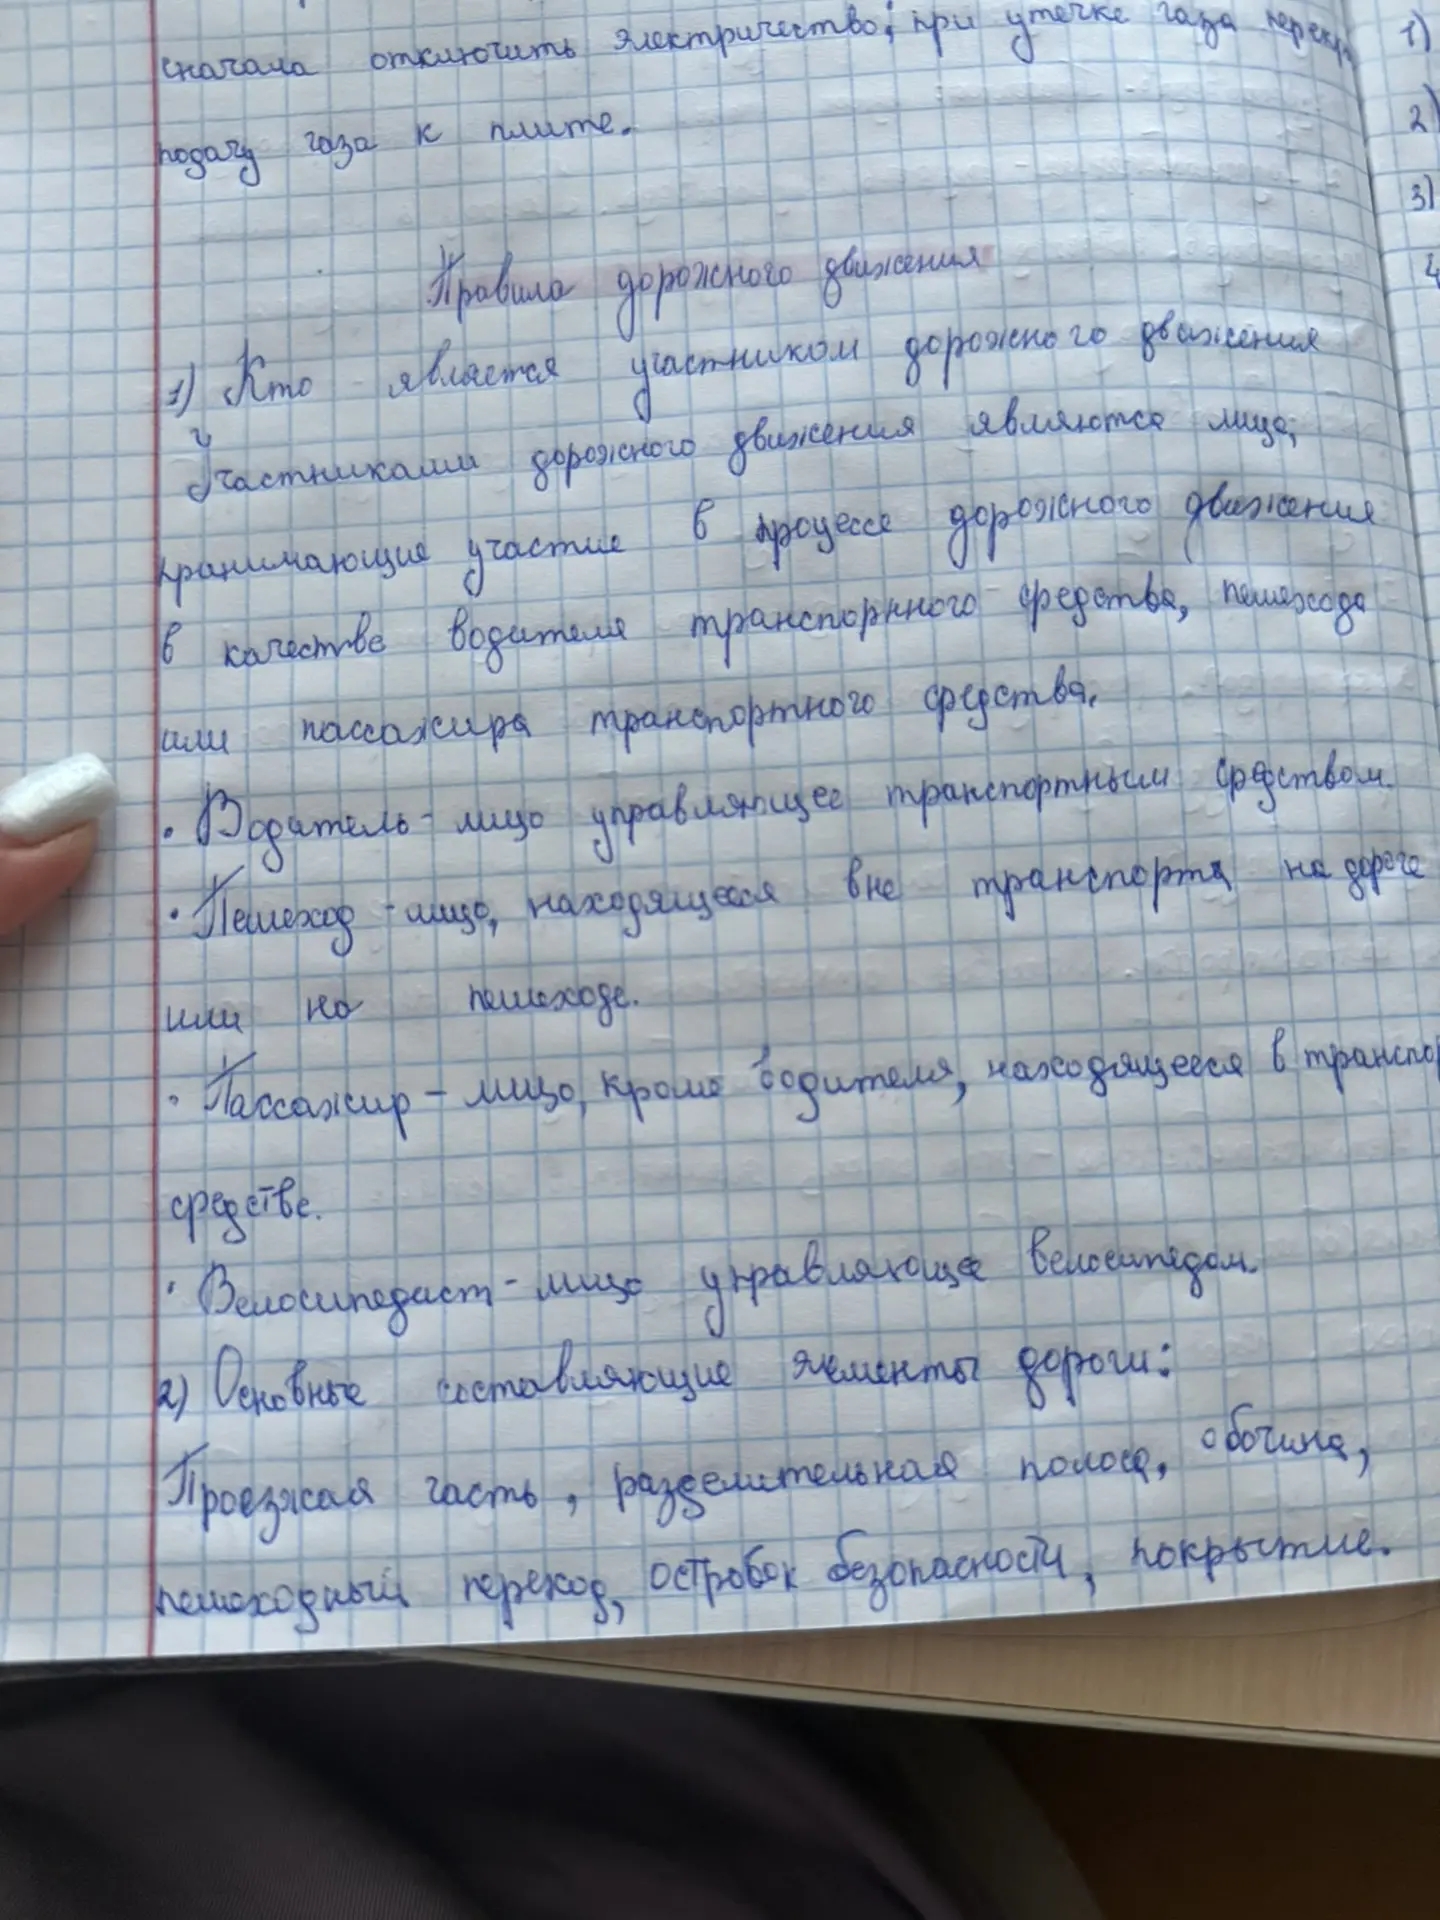 сначала отключить электричество; при утечке газа перекр
1)
подачу газа к плите.
2)
3)
Правила дорожного движения
4
1) Кто является участником дорожного движения
Участниками дорожного движения являются лица,
принимающие участие в процессе дорожного движения
в качестве водителя транспорнного средства, пешехода
или пассажира транспортного средства.
• Водитель - лицо управляющее транспортным средством.
• Пешеход - лицо, находящееся вне транспорта на дороге
или на пешеходе.
• Пассажир - лицо, кроме водителя, находящееся в транспор
средстве.
• Велосипедист - лицо управляющее велосипедом.
2) Основные составляющие элементы дороги:
Проезжая часть, разделительная полоса, обочина,
пешеходный переход, островок безопасности, покрытие.